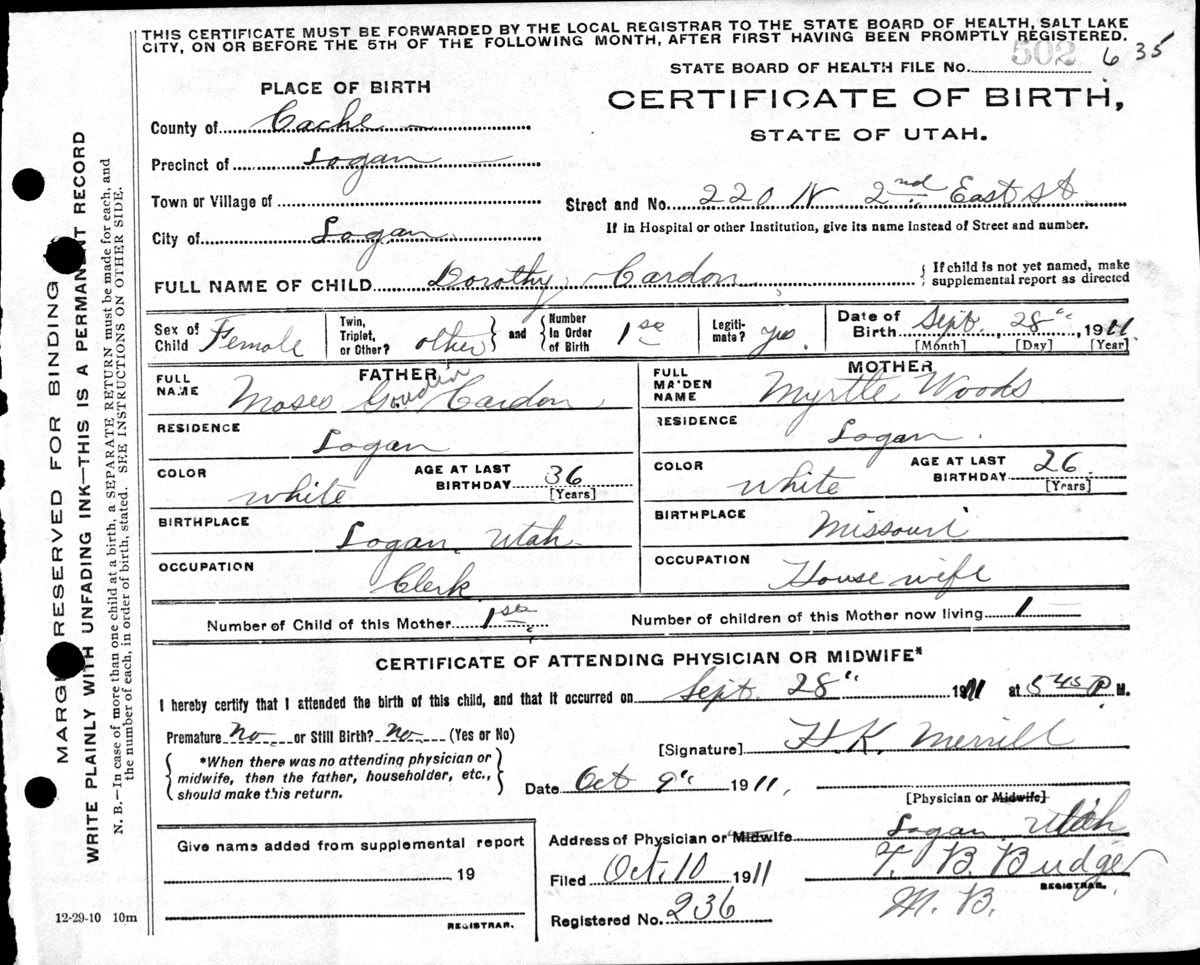 THIS CERTIFICATE MUST BE FORWARDED BY THE LOCAL REGISTRAR TO THE STATE BOARD OF HEALTH, SALT LAKE
CITY, ON OR BEFORE THE 5TH OF THE FOLLOWING MONTH, AFTER FIRST HAVING BEEN PROMPTLY REGISTERED.
STATE BOARD OF HEALTH FILE No. 502 6 35
PLACE OF BIRTH
CERTIFICATE OF BIRTH,
STATE OF UTAH.
County of Cache
Precinct of Logan
Town or Village of
Street and No. 220 N 2nd East St
City of Logan
If in Hospital or other Institution, give its name instead of Street and number.
FULL NAME OF CHILD Dorothy Cardon { If child is not yet named, make
supplemental report as directed
Sex of Child Female
Twin, Triplet, or Other? other } and { Number in Order of Birth 1st
Legiti-mate? Yes
Date of Birth Sept. 28" 1911
[Month] [Day] [Year]
FATHER
FULL NAME Moses Goudin Cardon
RESIDENCE Logan
COLOR White AGE AT LAST BIRTHDAY 36 [Years]
BIRTHPLACE Logan, Utah
OCCUPATION Clerk
MOTHER
FULL MAIDEN NAME Myrtle Woods
RESIDENCE Logan
COLOR White AGE AT LAST BIRTHDAY 26 [Years]
BIRTHPLACE Missouri
OCCUPATION House wife
Number of Child of this Mother 1st Number of children of this Mother now living 1
CERTIFICATE OF ATTENDING PHYSICIAN OR MIDWIFE*
I hereby certify that I attended the birth of this child, and that it occurred on Sept. 28" 1911 at 5 45 P. M.
Premature No or Still Birth? No (Yes or No)
[Signature] H. K. Merrill
{ *When there was no attending physician or
midwife, then the father, householder, etc.,
should make this return. }
Date Oct 9" 1911,
[Physician or Midwife]
Give name added from supplemental report
19
REGISTRAR.
Address of Physician or Midwife Logan Utah
Filed Oct. 10 1911 T. B. Budge
REGISTRAR.
M. B.
Registered No. 236
12-29-10 10m
MARGIN RESERVED FOR BINDING
WRITE PLAINLY WITH UNFADING INK—THIS IS A PERMANENT RECORD
N. B.—In case of more than one child at a birth, a SEPARATE RETURN must be made for each, and
the number of each, in order of birth, stated. SEE INSTRUCTIONS ON OTHER SIDE.